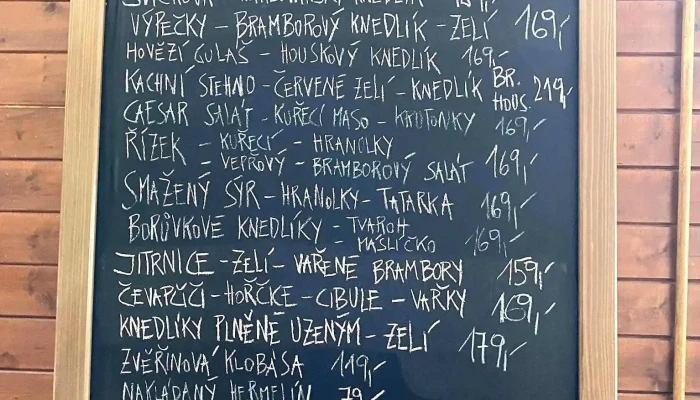 VÝPEČKY - BRAMBOROVÝ KNEDLÍK - ZELÍ 169,-
HOVĚZÍ GULAŠ - HOUSKOVÝ KNEDLÍK 169,-
KACHNÍ STEHNO - ČERVENÉ ZELÍ - KNEDLÍK BR. HOUS. 219,-
CAESAR SALÁT - KUŘECÍ MASO - KRUTONKY 169,-
ŘÍZEK - KUŘECÍ - HRANOLKY
- VEPŘOVÝ - BRAMBOROVÝ SALÁT 169,-
SMAŽENÝ SÝR - HRANOLKY - TATARKA 169,-
BORŮVKOVÉ KNEDLÍKY - TVAROH
- MÁSLÍČKO 169,-
JITRNICE - ZELÍ - VAŘENÉ BRAMBORY 159,-
ČEVAPČIČI - HOŘČICE - CIBULE - VAŘKY 169,-
KNEDLÍKY PLNĚNÉ UZENÝM - ZELÍ 179,-
ZVĚŘINOVÁ KLOBÁSA 119,-
NAKLÁDANÝ HERMELÍN 79,-